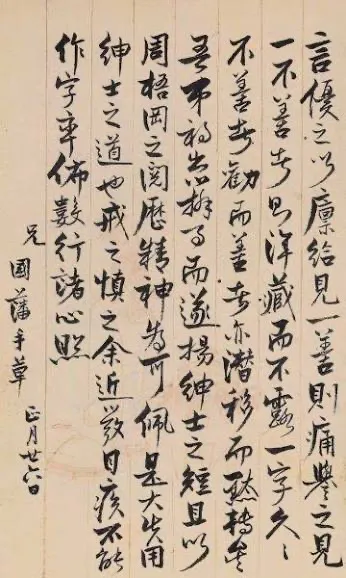 言優之以廩給見一善則痛譽之見
一不善者則渾藏而不露一字久々
不善者勸而善者亦潛移而默轉矣
吾弟初出辦事而遂揚紳士之短且以
周梧岡之閱歷精神為可佩是大失用
紳士之道也戒之慎之余近發目疾不能
作字率佈數行諸心照
兄國藩手草 正月廿六日